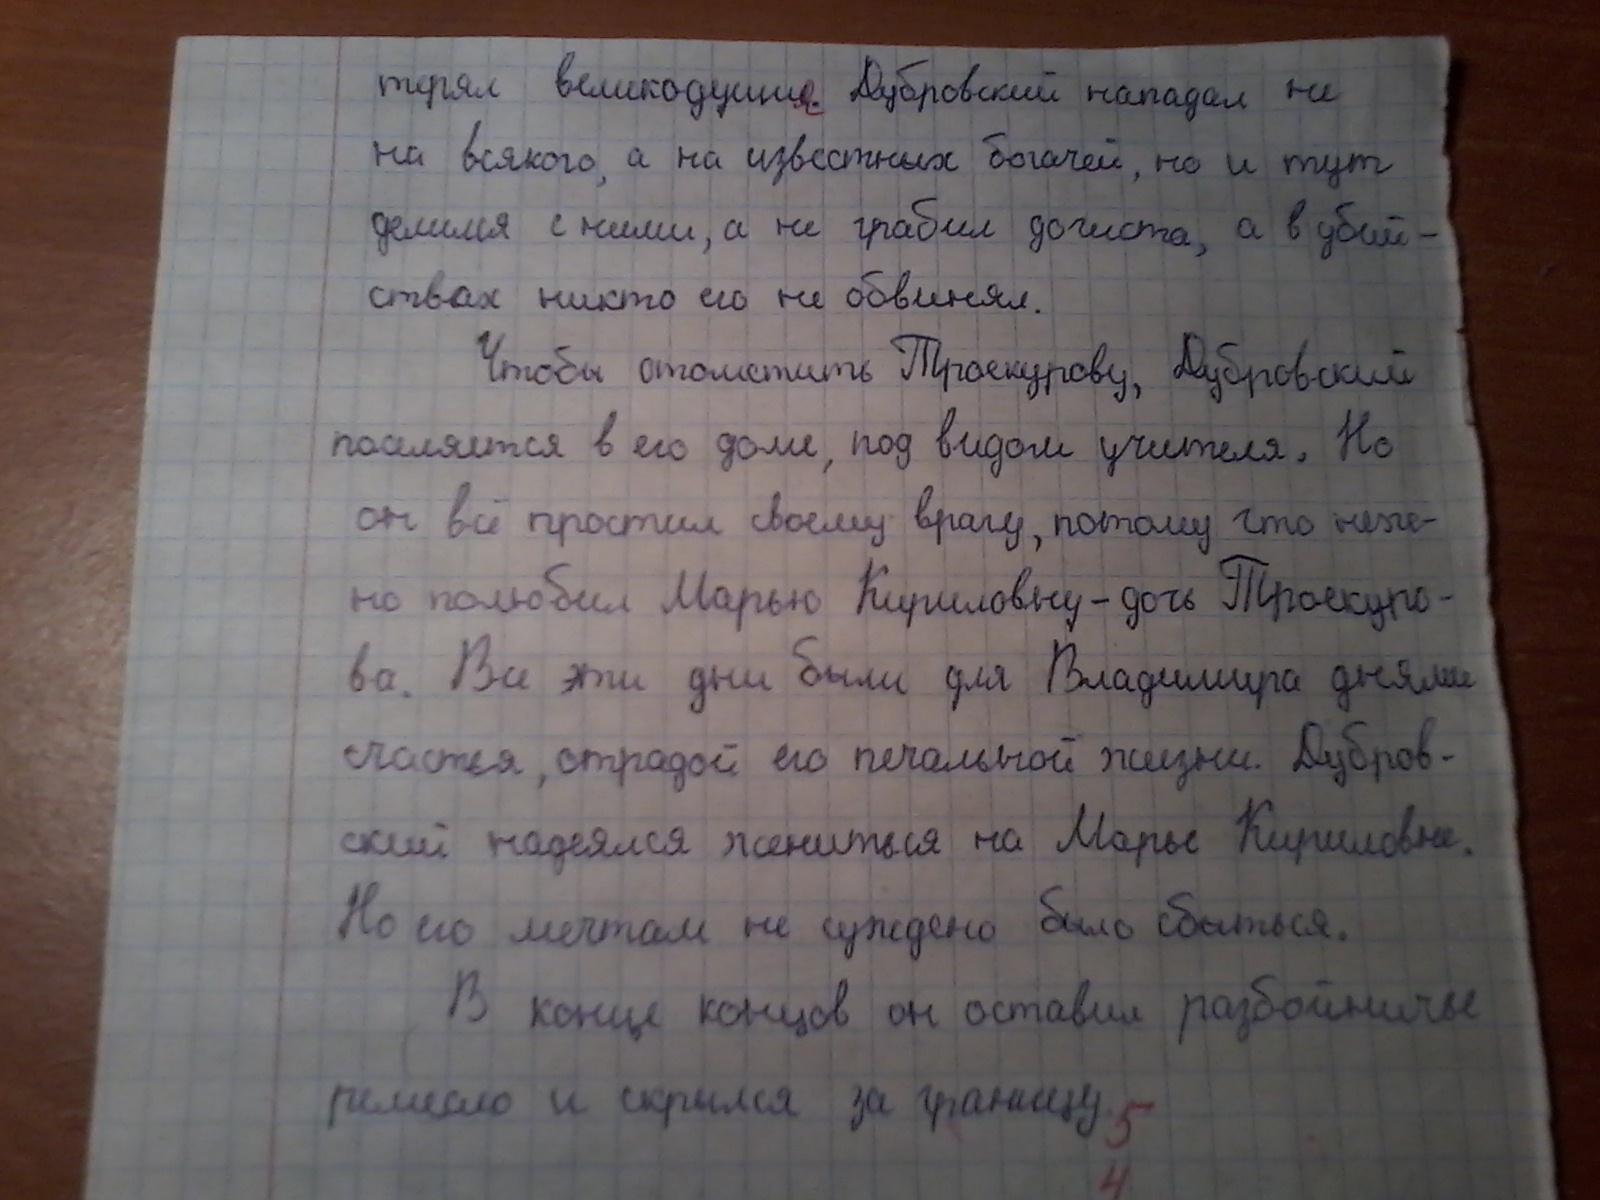 терял великодушия. Дубровский нападал не
на всякого, а на известных богачей, но и тут
делился с ними, а не грабил дочиста, а в убий-
ствах никто его не обвинял.
Чтобы отомстить Троекурову, Дубровский
поселяется в его доме, под видом учителя. Но
он всё простил своему врагу, потому что неже-
но полюбил Марью Кириловну - дочь Троекуро-
ва. Все эти дни были для Владимира днями
счастья, отрадой его печальной жизни. Дубров-
ский надеялся жениться на Марье Кириловне.
Но его мечтам не суждено было сбыться.
В конце концов он оставил разбойничье
ремесло и скрылся за границу.
5
4